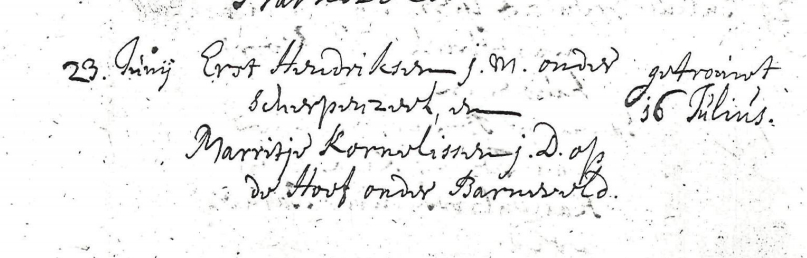 23. Junij Erst Hendriksen j. M. onder getrouwt
Scherpenzeel, en 16 Julius.
Marritje Kornelissen j. D. op
de Hoef onder Barneveld.